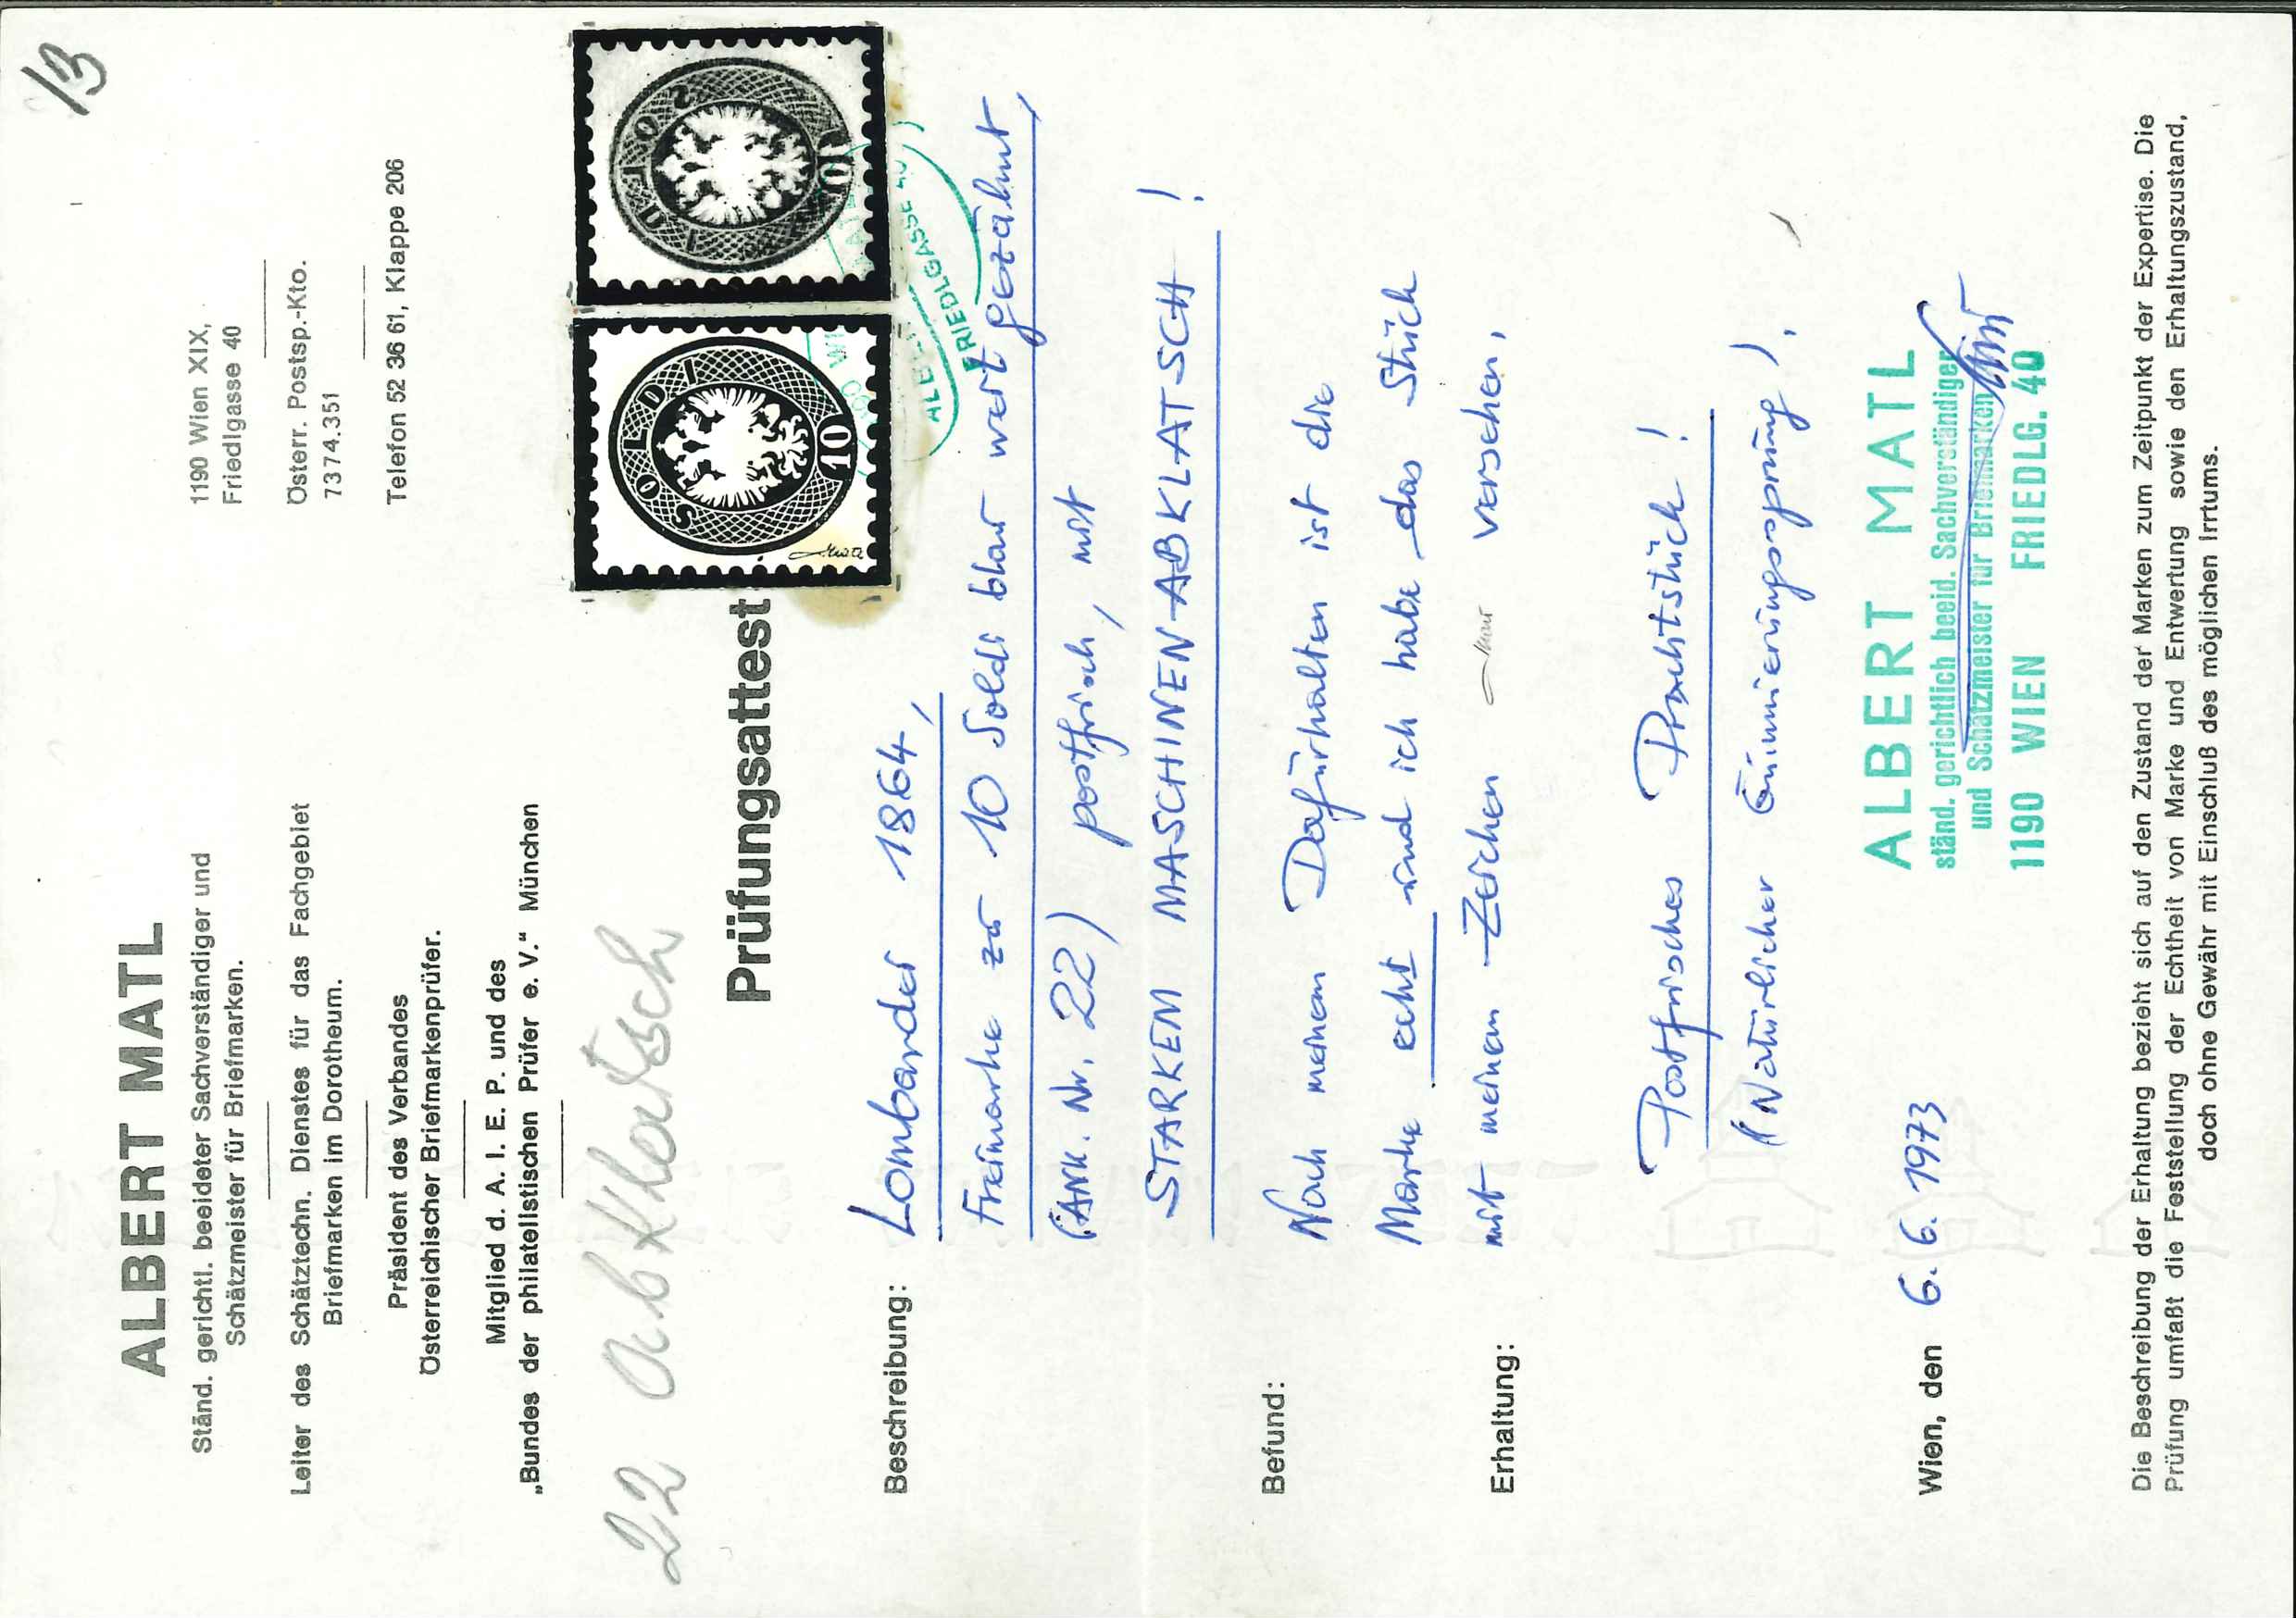 13
ALBERT MATL
Ständ. gerichtl. beeideter Sachverständiger und
Schätzmeister für Briefmarken.
Leiter des Schätztechn. Dienstes für das Fachgebiet
Briefmarken im Dorotheum.
Präsident des Verbandes
Österreichischer Briefmarkenprüfer.
Mitglied d. A. I. E. P. und des
„Bundes der philatelistischen Prüfer e. V.“ München
1190 Wien XIX,
Friedlgasse 40
Österr. Postsp.-Kto.
7374.351
Telefon 52 36 61, Klappe 206
22 Abklatsch
Prüfungsattest
SOLDI
10
SOLDI
10
FRIEDLGASSE 40
Beschreibung:
Lombardei 1864,
Freimarke zu 10 Soldi blau weit gezähnt,
(ANK. Nr. 22) postfrisch, mit
STARKEM MASCHINEN-ABKLATSCH!
Befund:
Nach meinem Dafürhalten ist die
Marke echt und ich habe das Stück
mit meinem Zeichen versehen.
Erhaltung:
Postfrisches Prachtstück!
(Natürlicher Gummierungssprung)!
Wien, den 6. 6. 1973
ALBERT MATL
ständ. gerichtlich beeid. Sachverständiger
und Schätzmeister für Briefmarken
1190 WIEN FRIEDLG. 40
Die Beschreibung der Erhaltung bezieht sich auf den Zustand der Marken zum Zeitpunkt der Expertise. Die
Prüfung umfaßt die Feststellung der Echtheit von Marke und Entwertung sowie den Erhaltungszustand,
doch ohne Gewähr mit Einschluß des möglichen Irrtums.